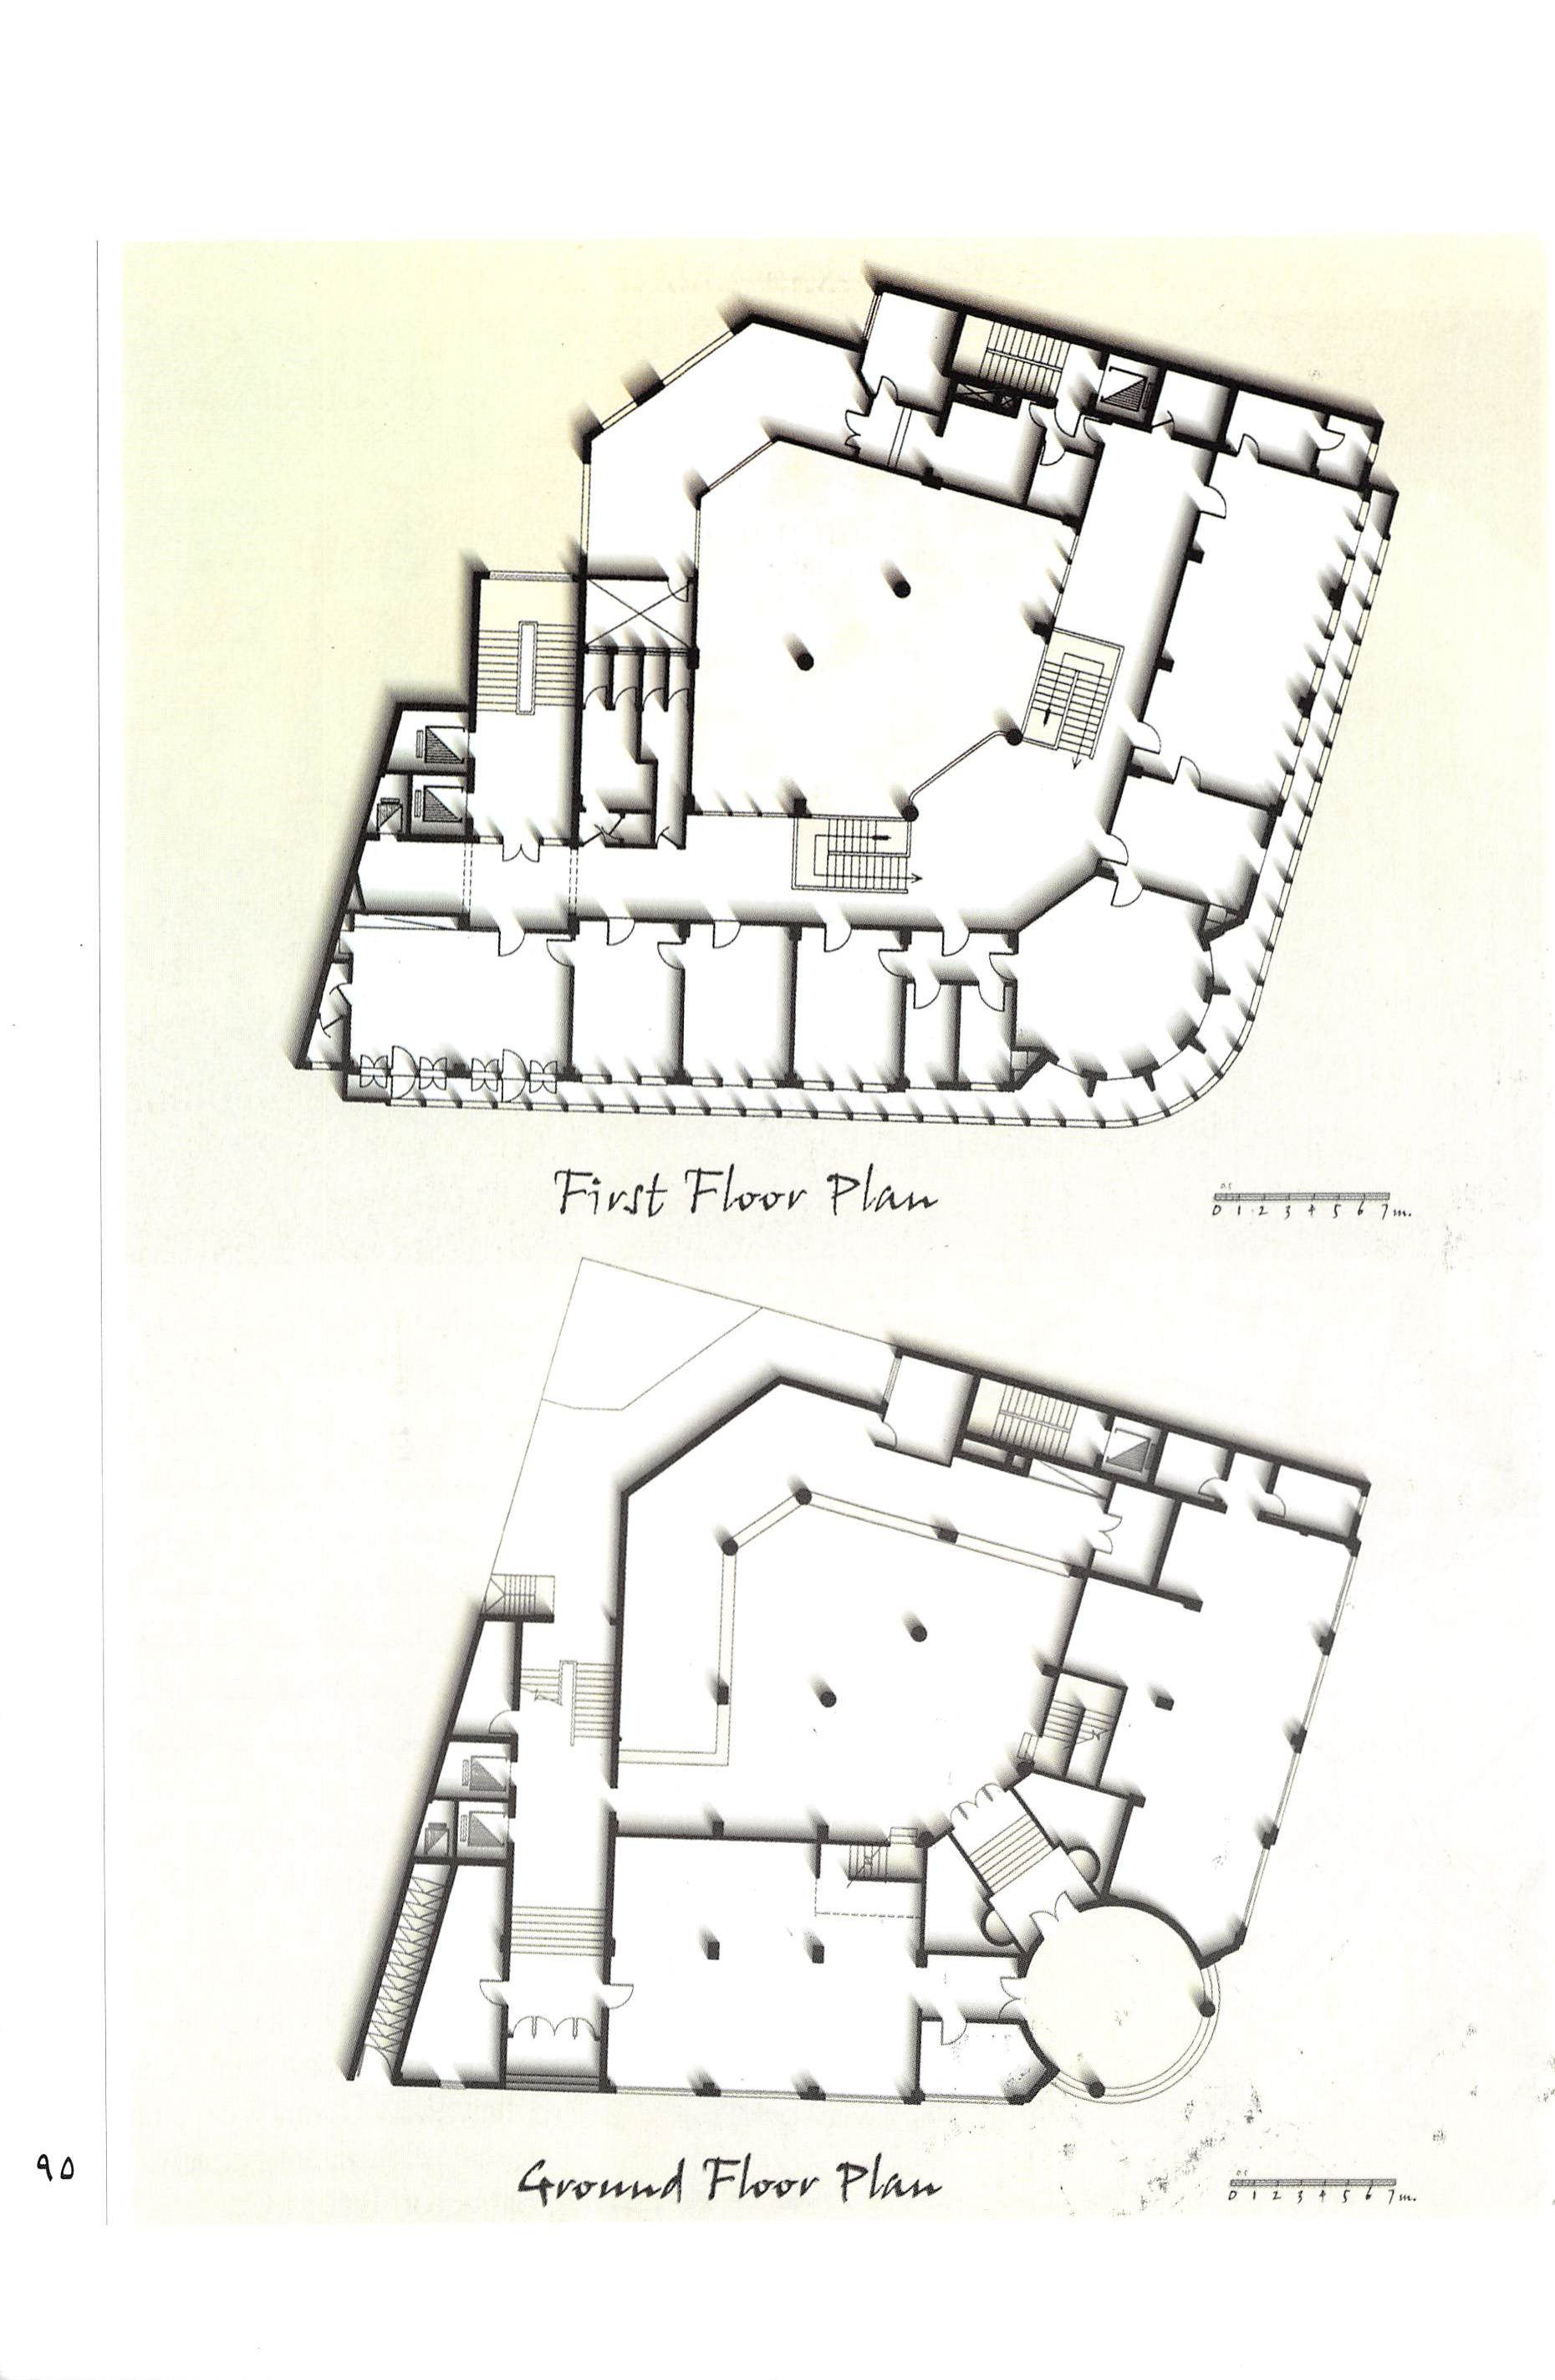 First Floor Plan
0.5
0 1 2 3 4 5 6 7m.
Ground Floor Plan
0.5
0 1 2 3 4 5 6 7m.
۹۵